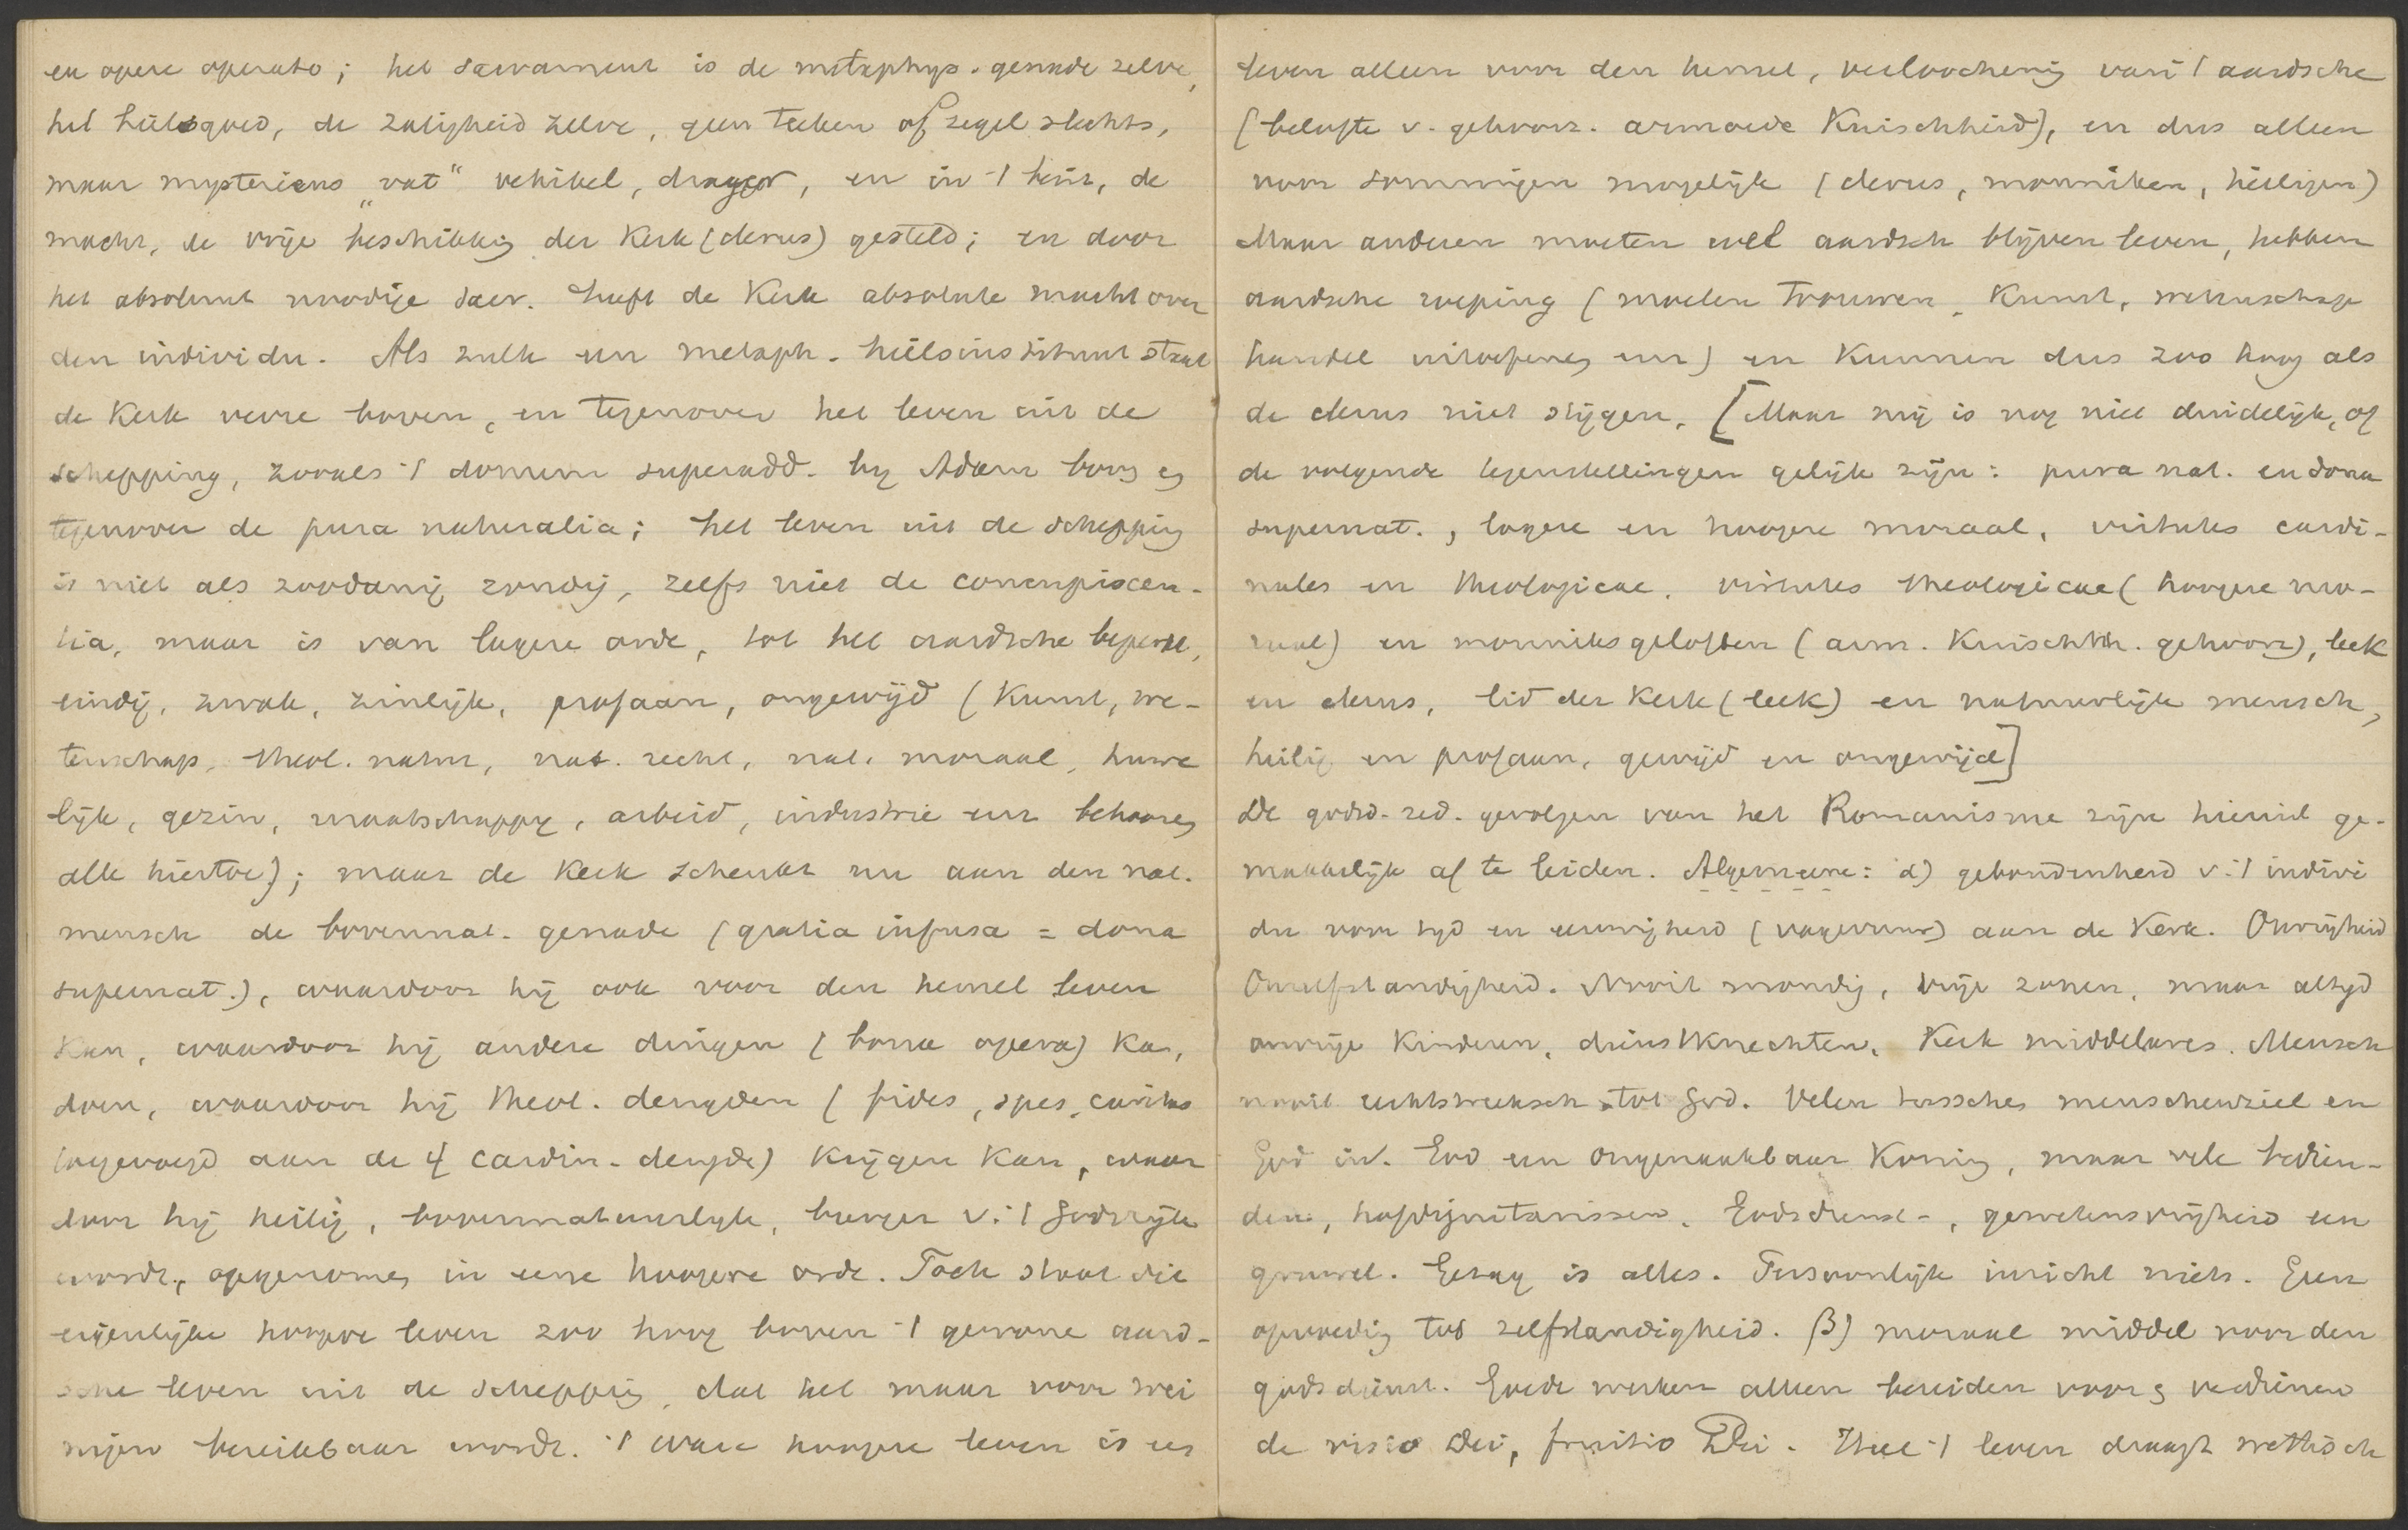 ex opere operato; het sacrament is de metaphys. genade zelve,
het heilsgoed, de zaligheid zelve, geen teeken of zegel slechts,
maar mysterieus „vat" vehikel, drager, en in 't huis, de
macht, de vrije beschikking der Kerk (clerus) gesteld; en door
het absoluut noodige sacr. heeft de Kerk absolute macht over
den individu. Als zulk een metaph. heilsinstituut staat
de Kerk verre boven, en tegenover het leven uit de
schepping, zooals 't donum superadd. by Adam boven en
tegenover de pura naturalia; het leven uit de schepping
is niet als zoodanig zondig, zelfs niet de concupiscen-
tia, maar is van lagere orde, tot het aardsche beperkt,
eindig, zwak, zinlijk, profaan, ongewijd (Kunst, we-
tenschap, theol. natur, nat. recht, nat. moraal, huwe
lijk, gezin, maatschappy, arbeid, industrie enz behooren
alle hiertoe); maar de Kerk schenkt nu aan den nat.
mensch de bovennat. genade (gratia infusa = dona
supernat.), waardoor hij ook voor den hemel leven
kan, waardoor hij andere dingen (bona opera) kan
doen, waardoor hij theol. deugden (fides, spes, caritas
toegevoegd aan de 4 cardin. deugde) krijgen kan, waar
door hij heilig, bovennatuurlyk, burger v. 't Godsrijk
wordt, opgenomen in eene hoogere orde. Toch staat dit
eigenlijke hoogere leven zoo hoog boven 't gewone aard-
sche leven uit de schepping, dat het maar voor wei
nigen bereikbaar wordt. 't Ware hoogere leven is een
leven alleen voor den hemel, verloochening van 't aardsche
(belofte v. gehoorz. armoede Kuischheid), en dus alleen
voor sommigen mogelijk (clerus, monniken, heiligen)
Maar anderen moeten wel aardsch blijven leven, hebben
aardsche roeping (moeten trouwen, Kunst, wetenschap
handel uitoefenen enz) en kunnen dus zoo hoog als
de clerus niet stijgen. [Maar mij is nog niet duidelijk, of
de volgende tegenstellingen gelijk zijn: pura nat. en dona
supernat., lagere en hoogere moraal, virtutes cardi-
nales en theologicae, virtutes theologicae (hoogere mo-
raal) en monniksgeloften (arm. Kuischh. gehoorz), leek
en clerus, lid der Kerk (leek) en natuurlijke mensch,
heilig en profaan, gewijd en ongewijd]
De godsd. zed. gevolgen van het Romanisme zijn hieruit ge-
makkelijk af te leiden. Algemeene: α) gebondenheid v. 't indivi
du voor tyd en eeuwigheid (vagevuur) aan de Kerk. Onvrijheid
Onzelfstandigheid. Nooit mondig, vrije zonen, maar altyd
onvrije kinderen, dienstknechten. Kerk middelares. Mensch
nooit rechtstreeksch tot God. Velen tusschen menschenziel en
God in. God een ongenaakbaar Koning, maar vele bedien-
den, hofdignitarissen. Godsdienst-, gewetensvrijheid een
gruwel. Gezag is alles. Persoonlijk inzicht niets. Geen
opvoeding tot zelfstandigheid. β) moraal middel voor den
godsdienst. Goede werken alleen bereiden voor en verdienen
de visio Dei, fruitio Dei. Heel 't leven draagt wettisch